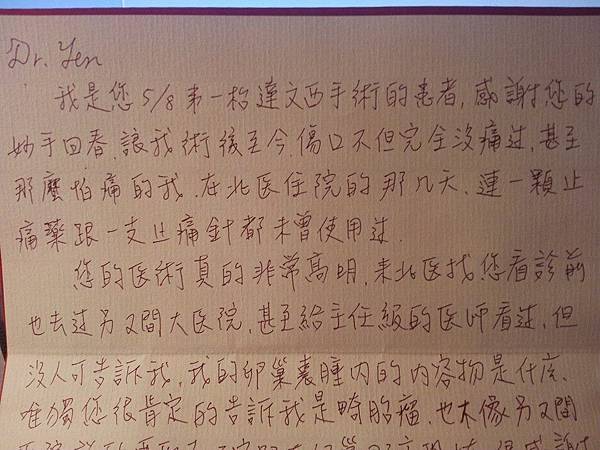 Dr. Yen
我是您5/8第一枱達文西手術的患者,感謝您的
妙手回春,讓我術後至今,傷口不但完全沒痛过,甚至
那麼怕痛的我,在北医住院的那几天,連一顆止
痛藥跟一支止痛針都未曾使用过.
您的医術真的非常高明,來北医找您看診前
也去过另又間大医院,甚至給主任級的医师看过,但
沒人可告訴我,我的卵巢囊腫内的内容物是什庅、
唯獨您很肯定的告訴我是畸胎瘤,也不像另又間